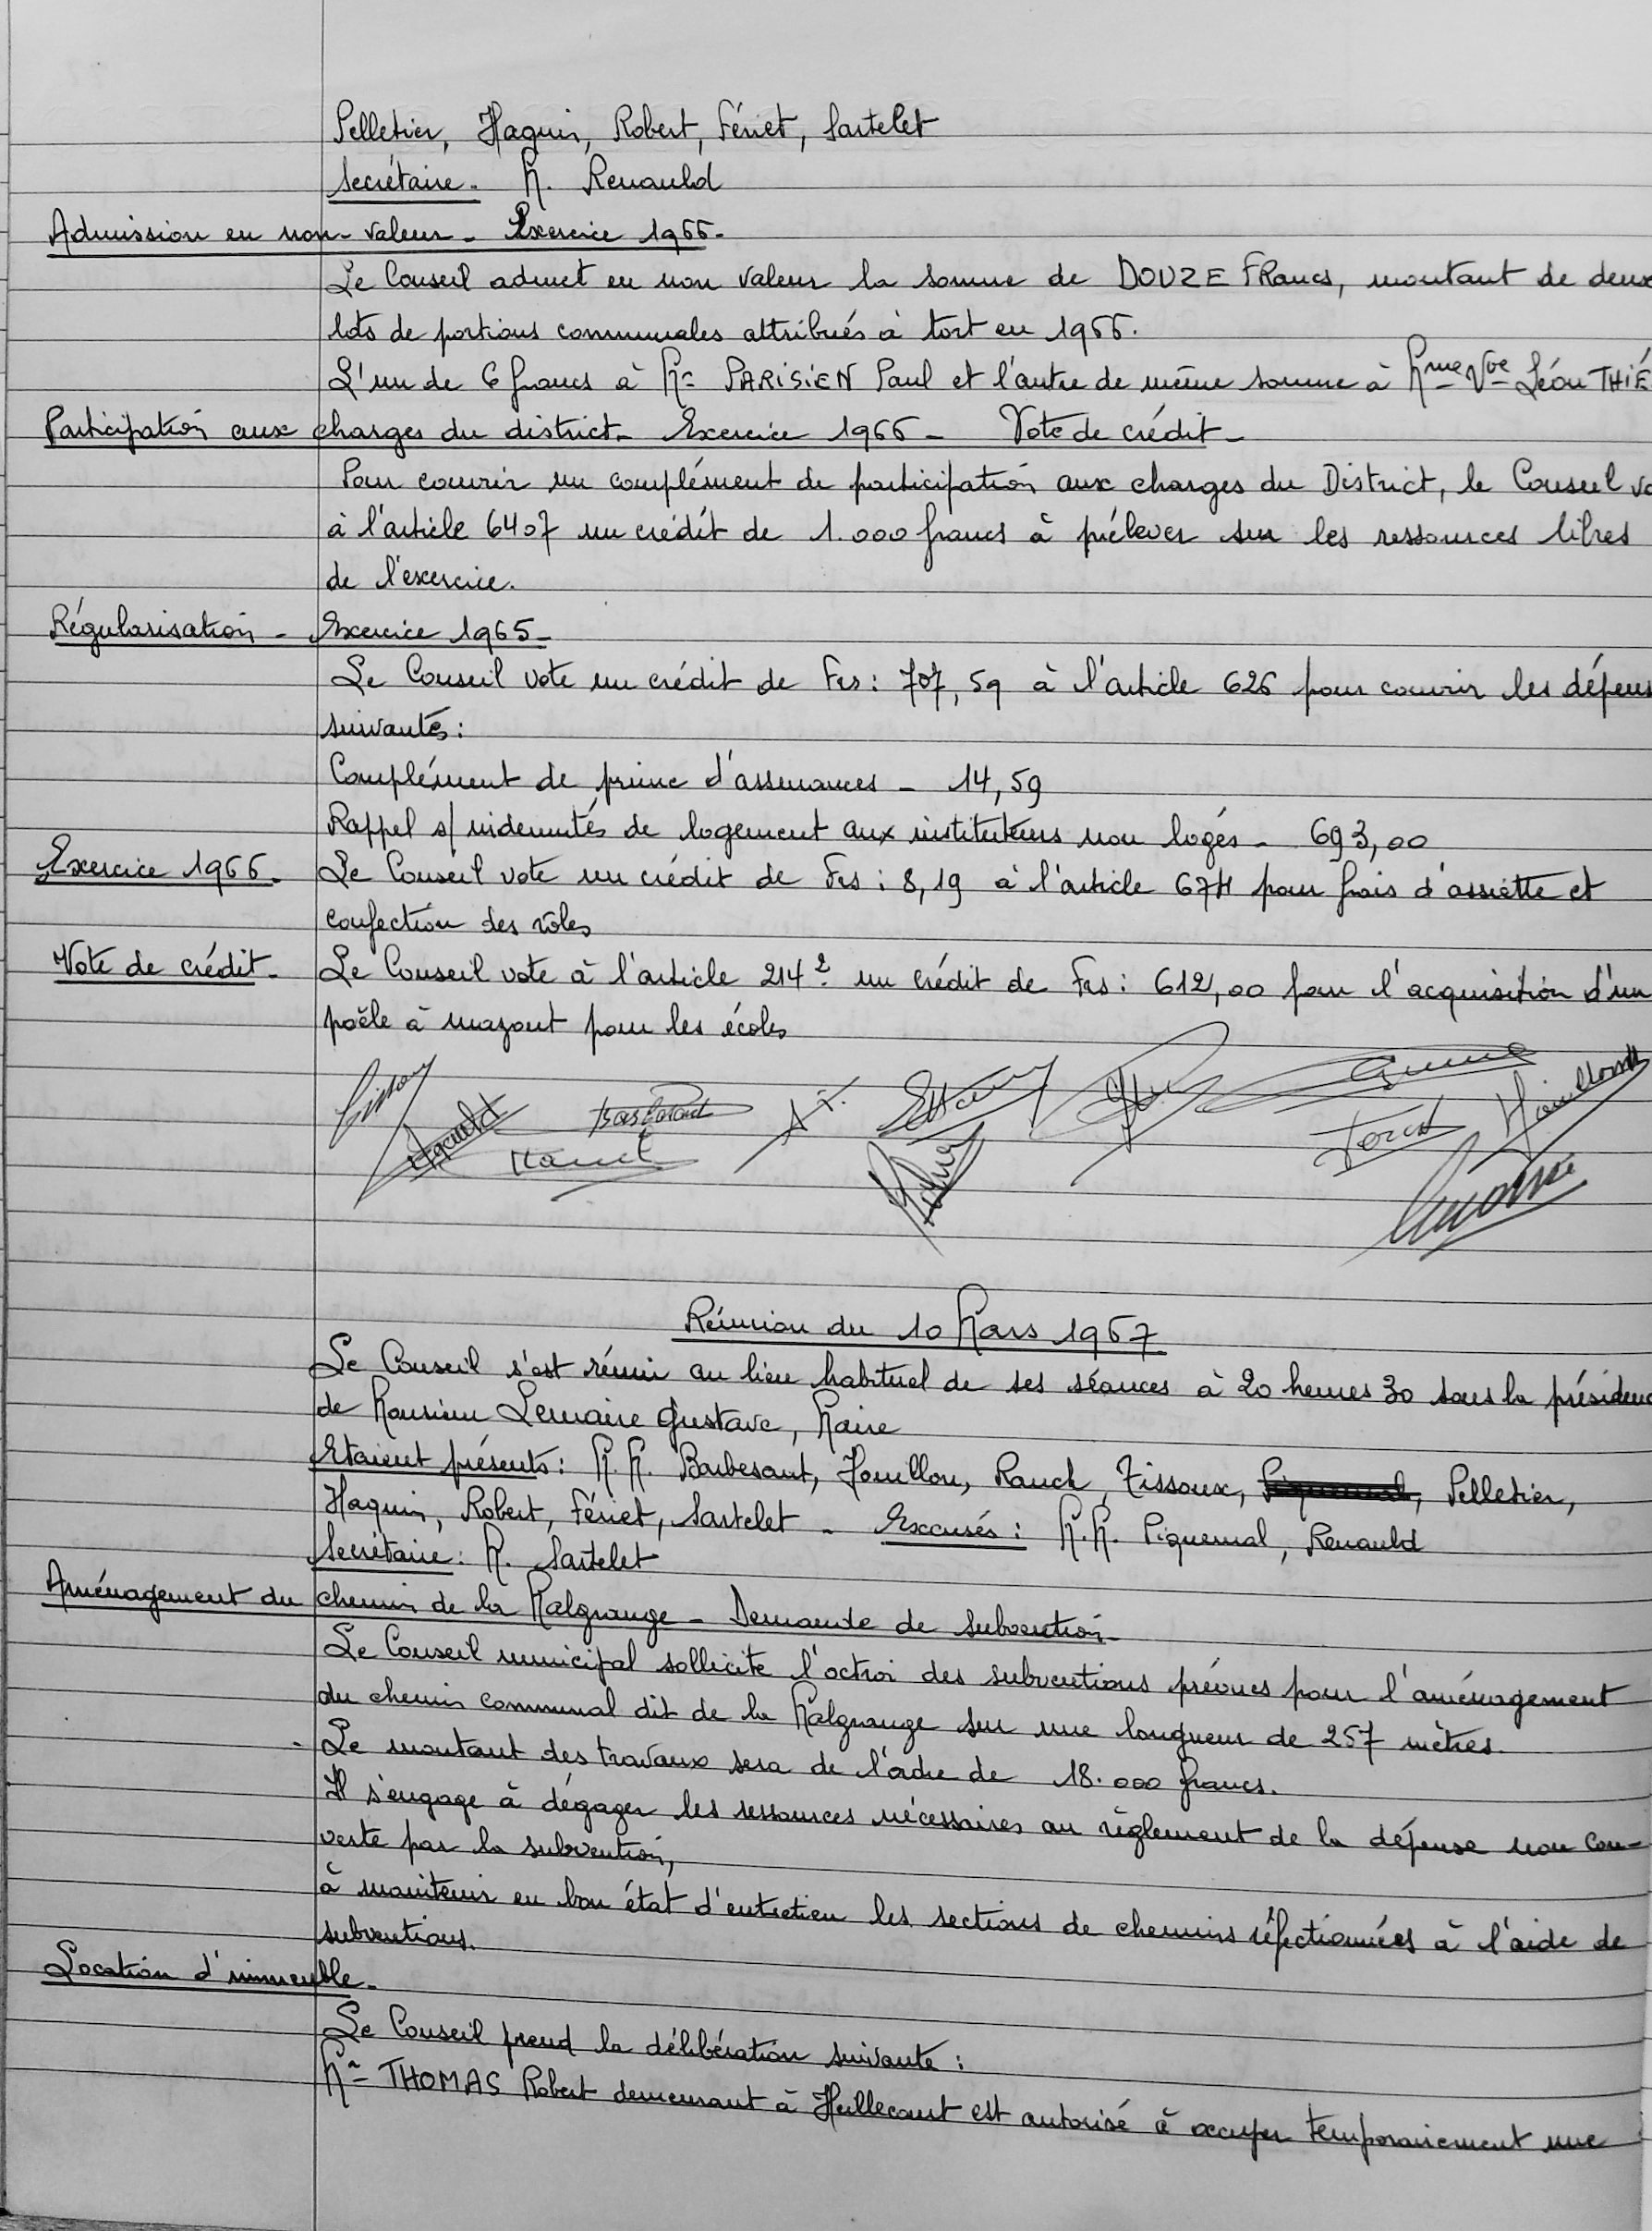 Pelletier, Haquin, Robert, Fériet, Sartelet
Secrétaire - M. Renauld
Admission en non-valeur - Exercice 1966 -
Le Conseil admet en non valeur la somme de DOUZE FRancs, montant de deux
lots de portions communales attribués à tort en 1966.
L'un de 6 francs à Mr PARISIEN Paul et l'autre de même somme à Mme Vve Léon THIÉ
Participation aux charges du district - Exercice 1966 - Vote de crédit -
Pour couvrir un complément de participation aux charges du District, le Conseil vo
à l'article 6407 un crédit de 1.000 francs à prélever sur les ressources libres
de l'exercice.
Régularisation - Exercice 1965 -
Le Conseil vote un crédit de Frs : 707,59 à l'article 626 pour couvrir les dépens
suivantes :
Complément de prime d'assurances - 14,59
Rappel s/ indemnités de logement aux instituteurs non logés - 693,00
Exercice 1966 - Le Conseil vote un crédit de Frs : 8,19 à l'article 674 pour frais d'assiette et
confection des rôles
Vote de crédit - Le Conseil vote à l'article 214² un crédit de Frs : 612,00 pour l'acquisition d'un
poêle à mazout pour les écoles
Réunion du 10 Mars 1967
Le Conseil s'est réuni au lieu habituel de ses séances à 20 heures 30 sous la présidenc
de Monsieur Lemaire Gustave, Maire
Etaient présents : M.M. Barbesant, Houillon, Rauch, Tissoux, Piquemal, Pelletier,
Haquin, Robert, Fériet, Sartelet - Excusés : M.M. Piquemal, Renauld
Secrétaire : M. Sartelet
Aménagement du chemin de la Malgrange - Demande de subvention -
Le Conseil municipal sollicite l'octroi des subventions prévues pour l'aménagement
du chemin communal dit de la Malgrange sur une longueur de 257 mètres.
Le montant des travaux sera de l'ordre de 18.000 francs.
Il s'engage à dégager les ressources nécessaires au règlement de la dépense non cou-
verte par la subvention,
à maintenir en bon état d'entretien les sections de chemins réfectionnées à l'aide de
subventions.
Location d'immeuble -
Le Conseil prend la délibération suivante :
Mr THOMAS Robert demeurant à Heillecourt est autorisé à occuper temporairement une